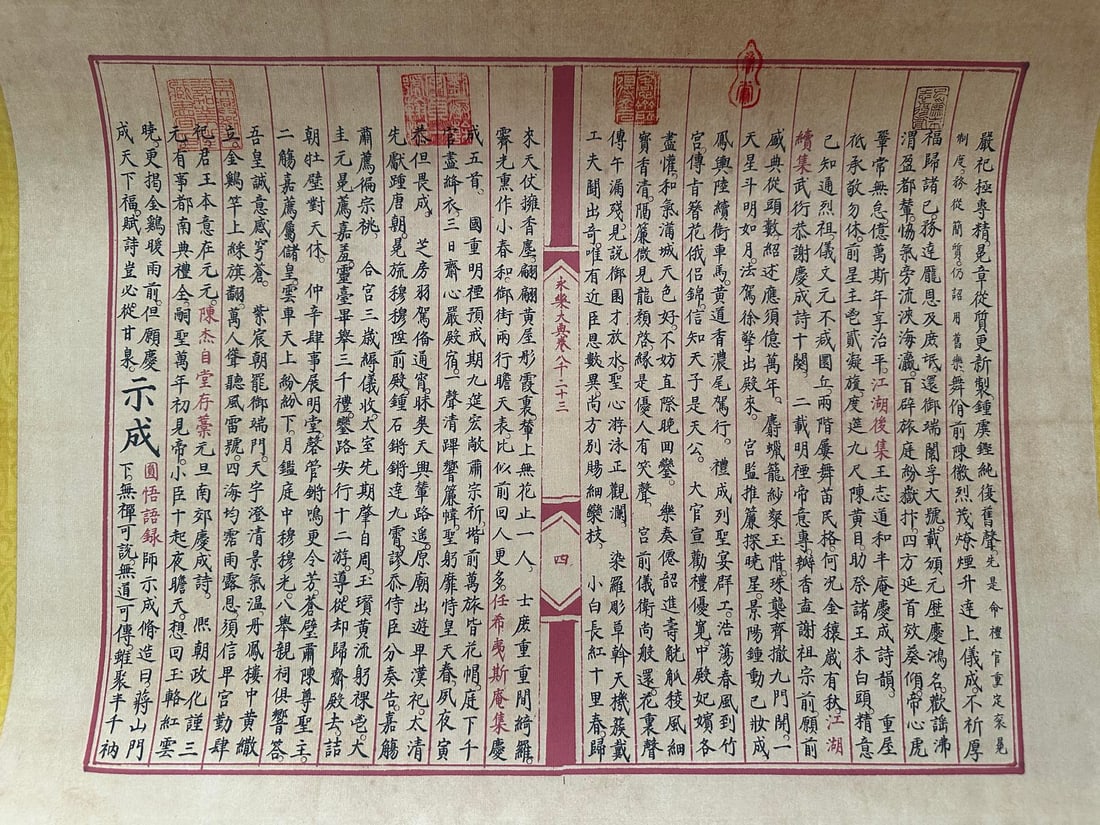 嚴祀極專精。冕章從質更新製。鍾虡鏗純復舊聲。先是命禮官重定袞冕
制度。務從簡質。仍詔用舊樂舞佾前陳徽烈茂。燎煙升達上儀成。不祈厚
福歸諸己。務達厖恩及庶氓。還御瑞闈孚大號。載頒元歷慶鴻名。歡謠沸
渭盈都輦。協氣旁流浹海瀛。百辟旅庭紛嶽抃。四方延首效葵傾。帝心虎
鞏常無怠。億萬斯年享治平。江湖後集王志道和半庵慶成詩韻。 重屋
祗承敢勿休。前星主鬯貳凝旒。度筵九尺陳黃目。助祭諸王未白頭。精意
已知通烈祖。儀文元不减圜丘。兩階屢舞苗民格。何况金穰歲有秋。江湖
續集武衍恭謝慶成詩十閱。 二載明禋帝意專。瓣香盡謝祖宗前。願前
盛典從頭數。紹述應須億萬年。 麝蠟籠紗粲玉階。珠龔齊撤九門開。一
天星斗明如月。法駕徐擎出殿來。 宮監推簾探曉星。景陽鍾動已妝成
鳳輿陸續銜車馬。黃道香濃尾駕行。 禮成列聖宴群工。浩蕩春風到竹
宮。傳肯簪花俄侶錦。信知天子是天公。 大官宣勸禮優寬。中殿妃嬪各
盡懽。和氣滿城天色好。不妨直際晚回鑾。 樂奏僊韶進壽觥。觚稜風細
寳香清。隔簾微見龍顏啓。緣是優人有笑聲。 宮前儀衛尚般還。花裏聲
傳午漏殘。見說御園才放水。聖心游泳正觀瀾。 染羅彫草斡天機。簇戴
工夫鬪出奇。唯有近臣恩數異。尚方别賜細欒枝。 小白長紅十里春。歸
永樂大典卷八千二十三
四
來天仗擁香塵。翩翩黃屋彤霞裏。輦上無花止一人。 士庶重重間綺羅。
霽光熏作小春和。御街兩行瞻天表。比似前回人更多。任希夷斯庵集慶
成五首。 國重明禋預戒期。九筵宏敞肅宗祈。堦前萬旅皆花帽。庭下千
官盡絳衣。三日齋心嚴殿宿。一聲清蹕響簾幃。聖躬靡恃皇天眷。夙夜寅
恭但畏威。 芝房羽駕俻通宵。昧爽天輿輦路遥。原廟出遊早漢祀。太清
先獻踵唐朝。冕旒穆穆陞前殿。鍾石鏘鏘達九霄。謬忝侍臣分奏告。嘉觴
肅薦徧宗祧。 合宮三歲縟儀收。太室先期肇自周。玉瓉黃流躬祼鬯。大
圭元冕薦嘉羞。靈臺畢舉三千禮。鑾路安行十二游。導從却歸齋殿去。詰
朝牡璧對天休。 仲辛肆事展明堂。磬管鏘鳴更令芳。蒼璧肅陳尊聖主。
二觴嘉薦屬儲皇。雲車天上紛紛下。月鑑庭中穆穆光。八舉親祠俱響答。
吾皇誠意感穹蒼。 紫宸朝罷御端門。天宇澄清景氣溫。丹鳳樓中黃繖
立。金鷄竿上綵旗翻。萬人聳聽風雷號。四海均霑雨露恩。須信甲宮勤肆
祀。君王本意在元元。陳杰自堂存藳元旦南郊慶成詩。 熙朝政化謹三
元。有事都南典禮全。嗣聖萬年初見帝。小臣十起夜瞻天。想回玉輅紅雲
曉。更揭金鷄暖雨前。但願慶成天下福。賦詩豈必從甘泉。示成 圓悟語録師示成脩造。曰。蔣山門
下。無禪可說。無道可傳。雖聚半千衲